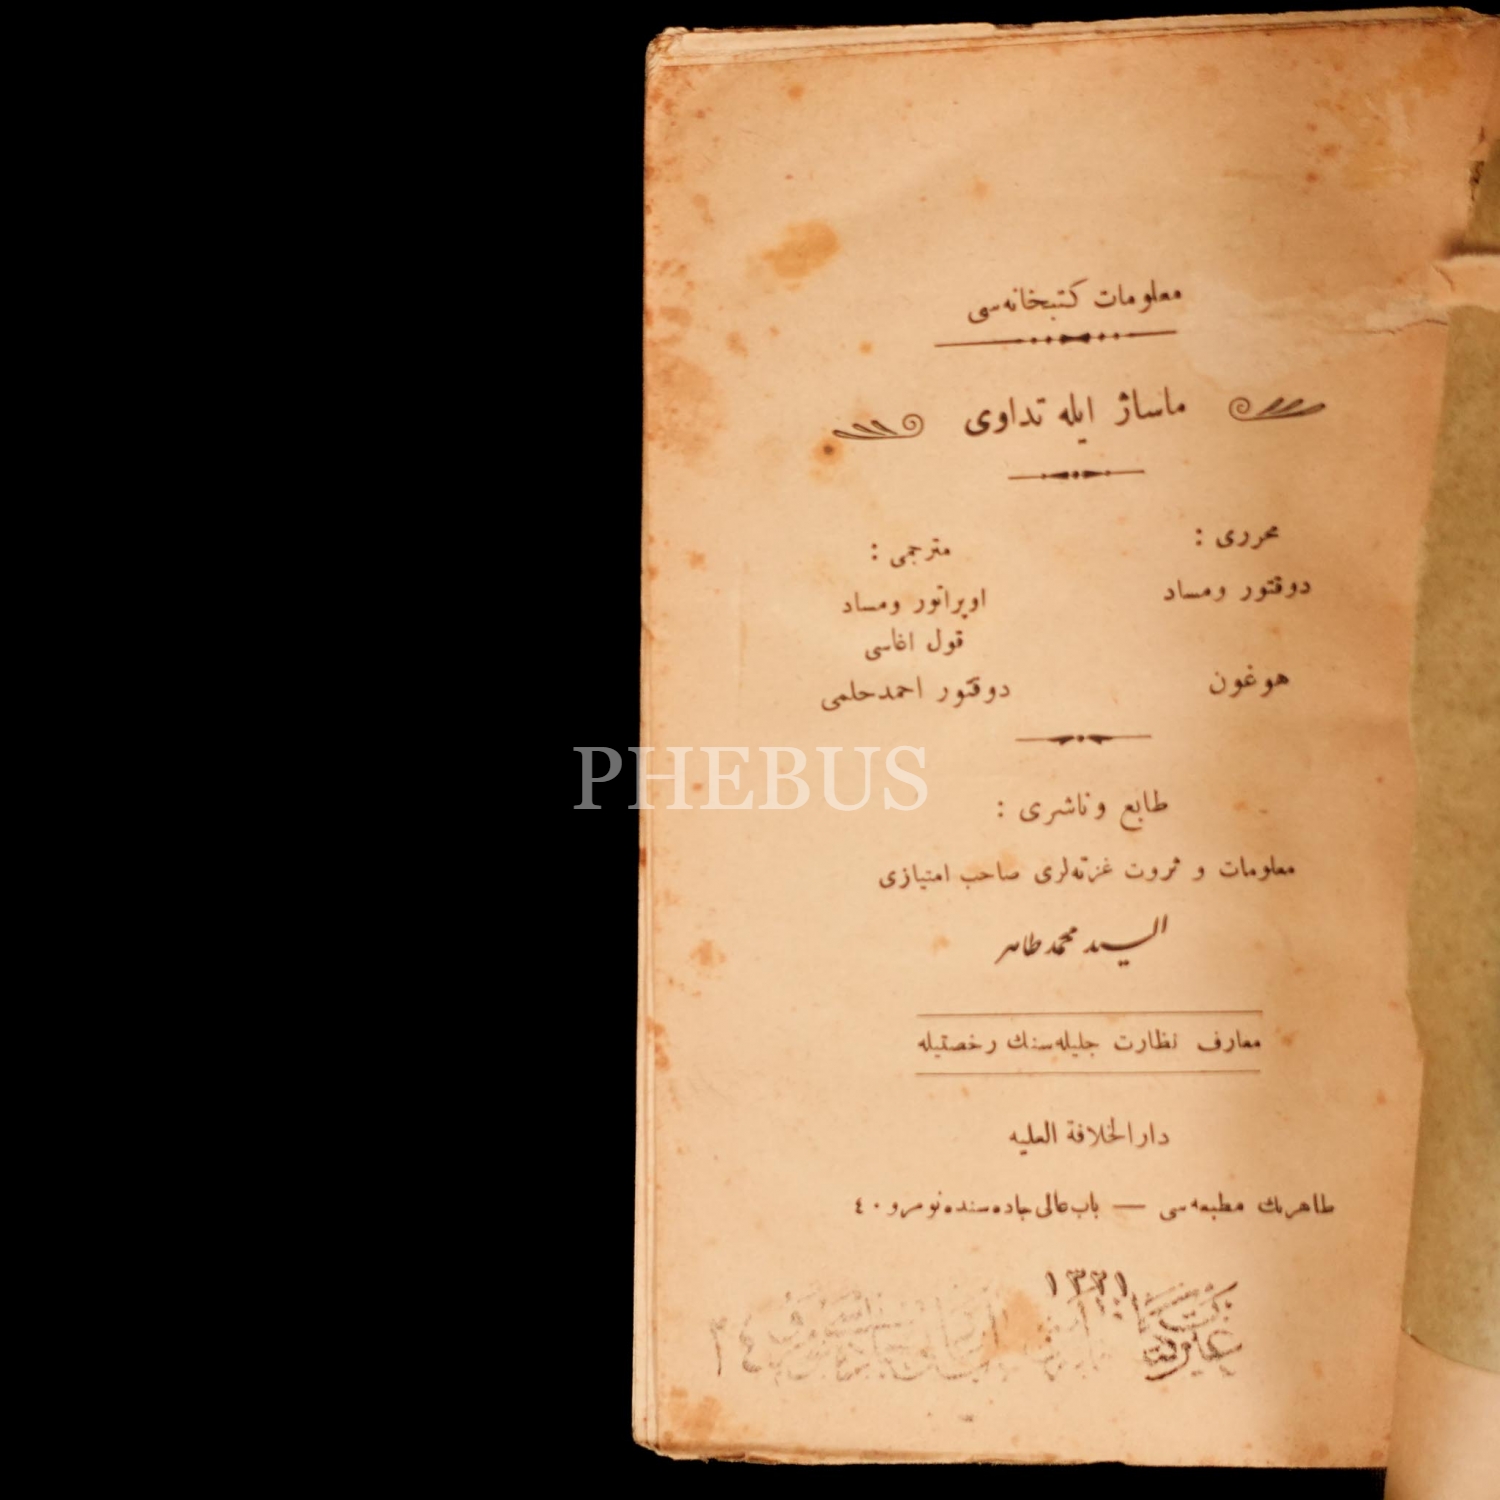 معلومات کتبخانه‌سی
ماساژ ایله تداوی
محرری :
دوقتور ومساد
هوغون
مترجمی :
اوپراتور ومساد
قول اغاسی
دوقتور احمدحلمی
طابع وناشری :
معلومات و ثروت غزته‌لری صاحب امتیازی
السید محمد طاهر
معارف نظارت جلیله‌سنك رخصتیله
دارالخلافة العلیه
طاهربك مطبعه‌سی — باب عالی جاده‌سنده نومرو ٤٠
١٣٢١
PHEBUS